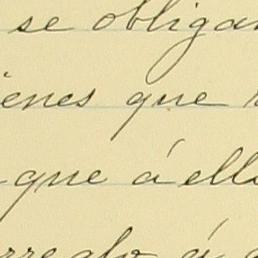 se obligan
ienes que
que á ella
rreglo á